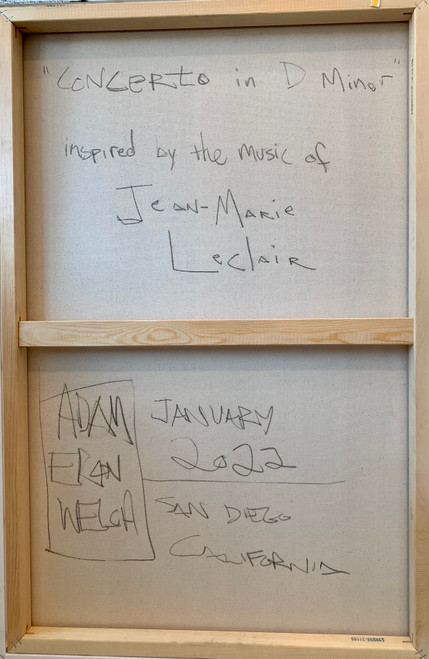 "CONCERTO in D Minor"
inspired by the music of
Jean-Marie
Leclair
ADAM
ERAN
WELCH
JANUARY
2022
SAN DIEGO
CALIFORNIA